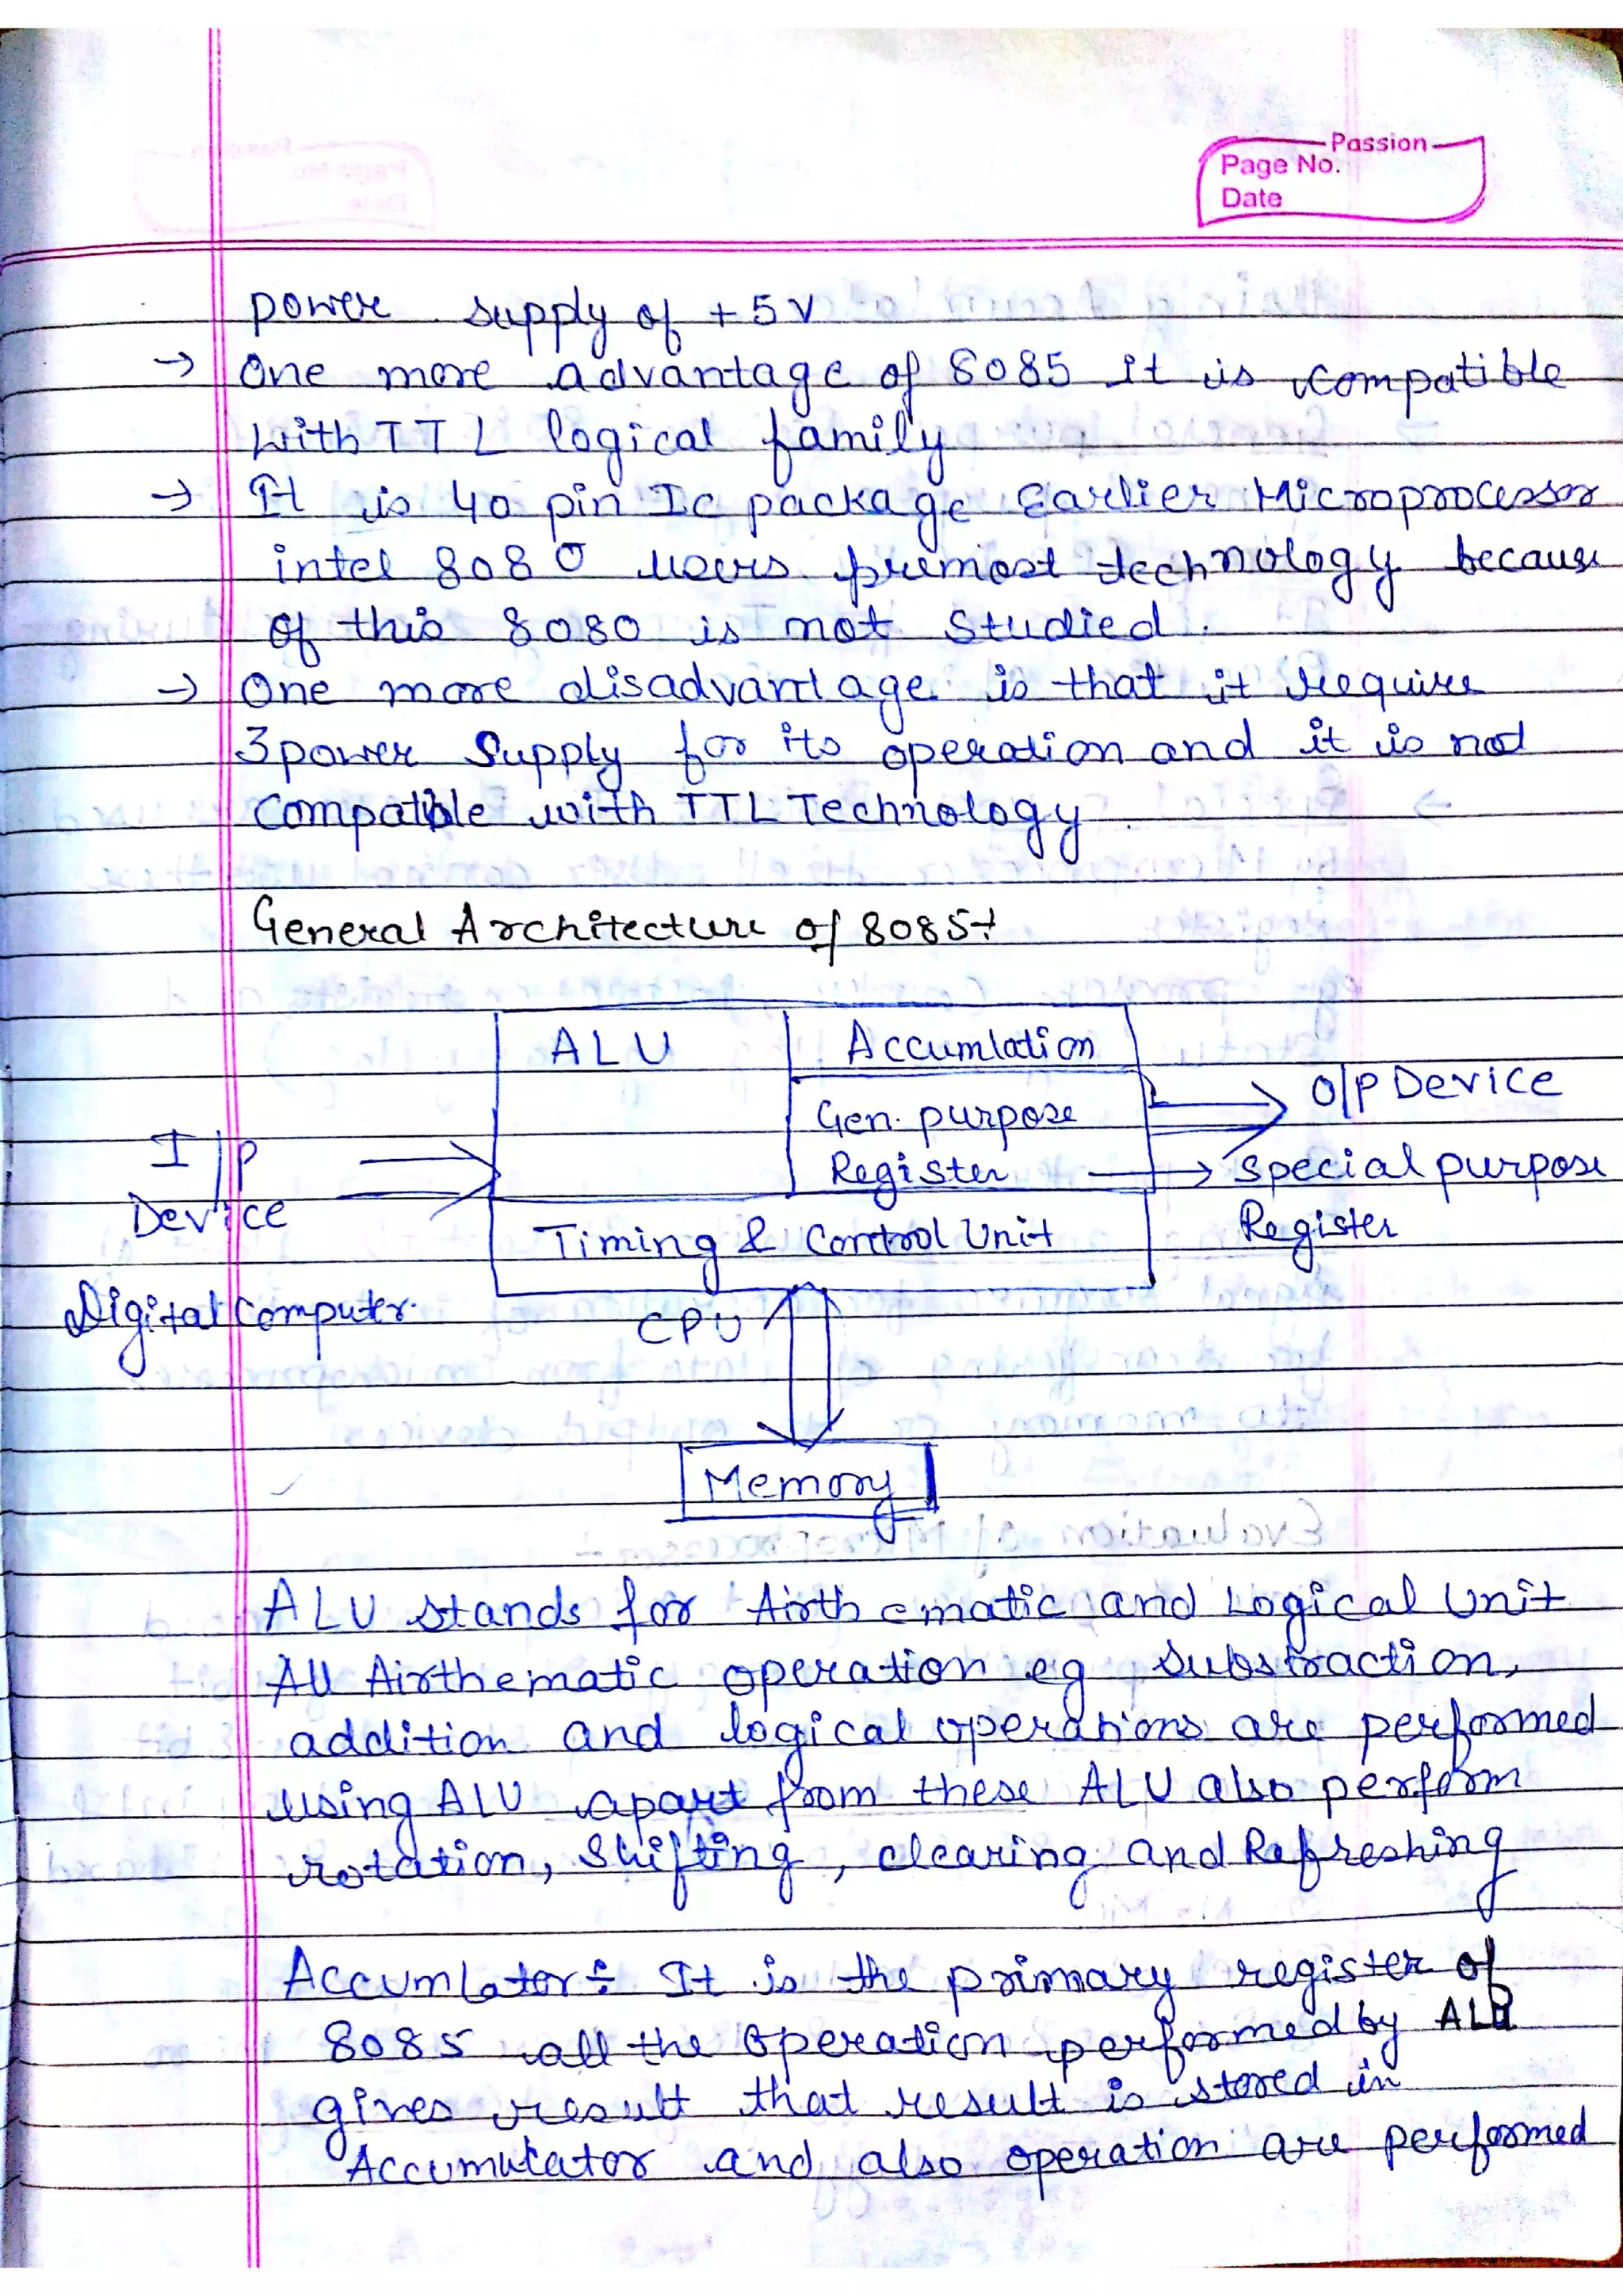 Passion
Page No.
Date
power supply of +5V
→ One more advantage of 8085 it is compatible
with TTL logical family
→ It is 40 pin Ic package Earlier Microprocessor
intel 8080 users premost technology because
of this 8080 is not studied.
→ One more disadvantage is that it require
3 power supply for its operation and it is not
Compatible with TTL Technology.
General Architecture of 8085:
ALU
Accumlation
Gen. purpose
Register
O/P Device
I/P
Device
Special purpose
Register
Timing & Control Unit
Digital Computer.
CPU
Memory
ALU stands for Airthematic and Logical Unit
All Airthematic operation eg substraction,
addition and logical operations are performed
using ALU apart from these ALU also perform
rotation, Shifting, clearing and Refreshing
Accumlator÷ It is the primary register of
8085 all the operation performed by ALU
gives result that result is stored in
Accumulator and also operation are performed